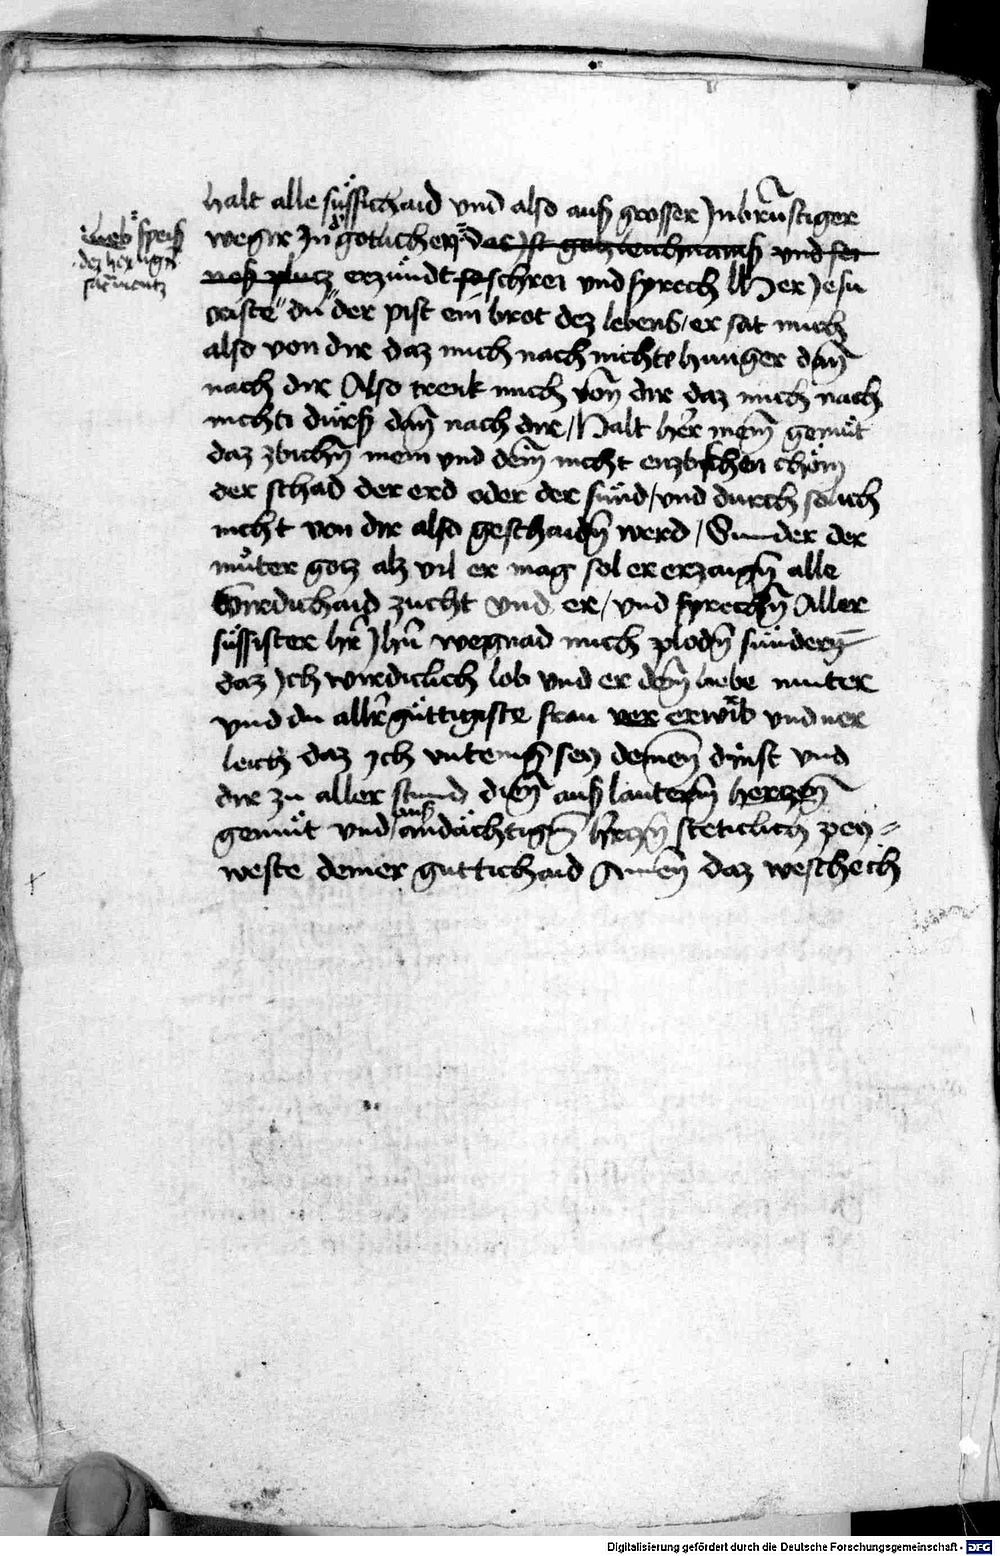 halt alle süssichaid vnd also auß grosser Jnbrünstiger
speiß
dez heiligñ
sacmentz
wegir Jn götlicher daz ist gotz leichnamß vnd sei
neß plutz erzündt so schrei vnd sprech Her Jesu
criste du der pist ein brot dez lebens / er sat mich
also von dir daz mich nach nichte hunger dañ
nach dir Also trenk mich võn dir daz mich nach
nichti dürß dañ nach dir / Halt her mein gemüt
daz zbischñ mein vnd dein nicht enzbischen chöm
der schad der erd oder der sünd / vnd durch solich
nicht von dir also geschaidñ werd / Sunder der
müter gotz alz vil er mag sol er erzaigñ alle
wirdichaid zucht vnd er / vnd sprechñ Aller
süssister hr̄ Jhu wegnad mich plodñ sünderñ
daz Jch wirdiclich lob vnd er deiñ liebe muter
vnd du allr̄ gütigiste frau ver erwirb vnd ver
leich daz Jch vntenig sey deineñ dinst vnd
dir zu aller stund dieñ auß lauterm herzeñ
gemüt vnd auß andächtigñ herczñ steticlich pey
weste deiner guttichaid Ameñ daz weschech
Digitalisierung gefördert durch die Deutsche Forschungsgemeinschaft - DFG